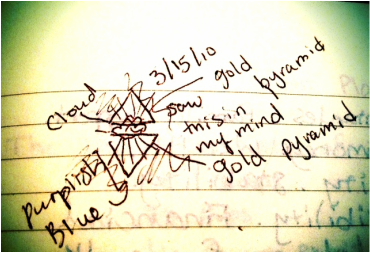 3/15/10
gold pyramid
Cloud
saw
this in
my mind
gold pyramid
Purplish
Blue